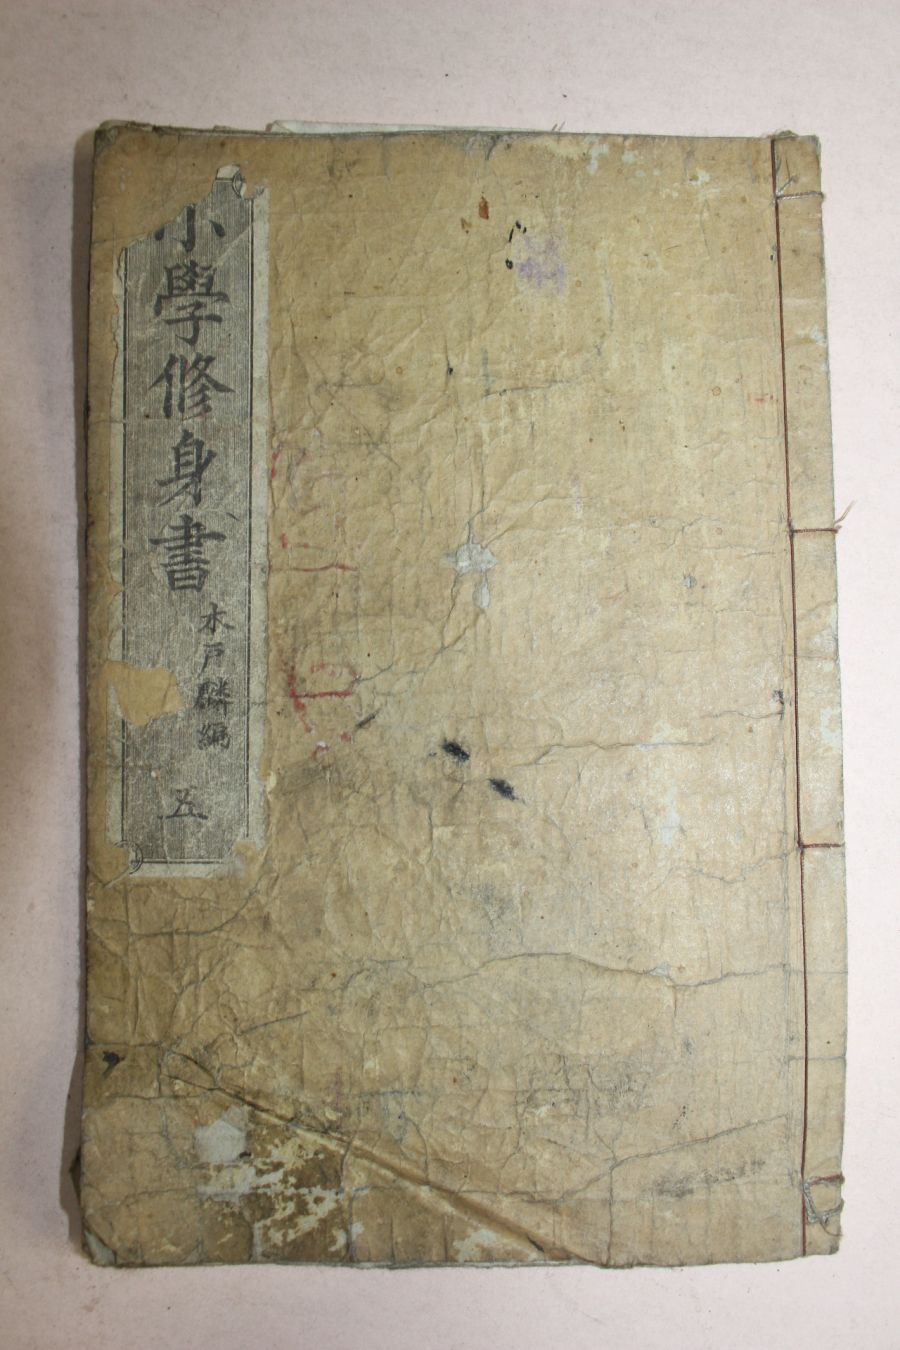 小學修身書
木戸麟編
五